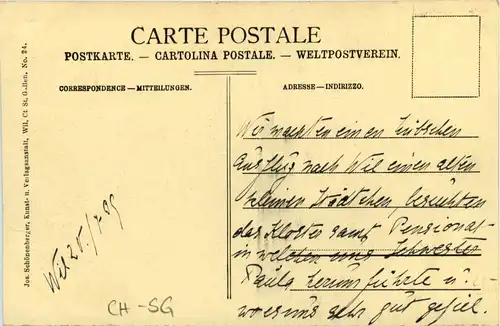 CARTE POSTALE
POSTKARTE. — CARTOLINA POSTALE. — WELTPOSTVEREIN.
CORRESPONDENCE — MITTEILUNGEN.
ADRESSE — INDIRIZZO.
Jos. Schönenberger, Kunst- u. Verlagsanstalt, Wil, Ct. St. Gallen. No. 24.
Wil 25./7 09
CH - SG
Wir machten einen hübschen
Ausflug nach Wil einen alten
kleinen Städtchen besuchten
das Kloster samt Pensionat
in welchem uns Schwester
Paula herumführte u.
wo es uns sehr gut gefiel.